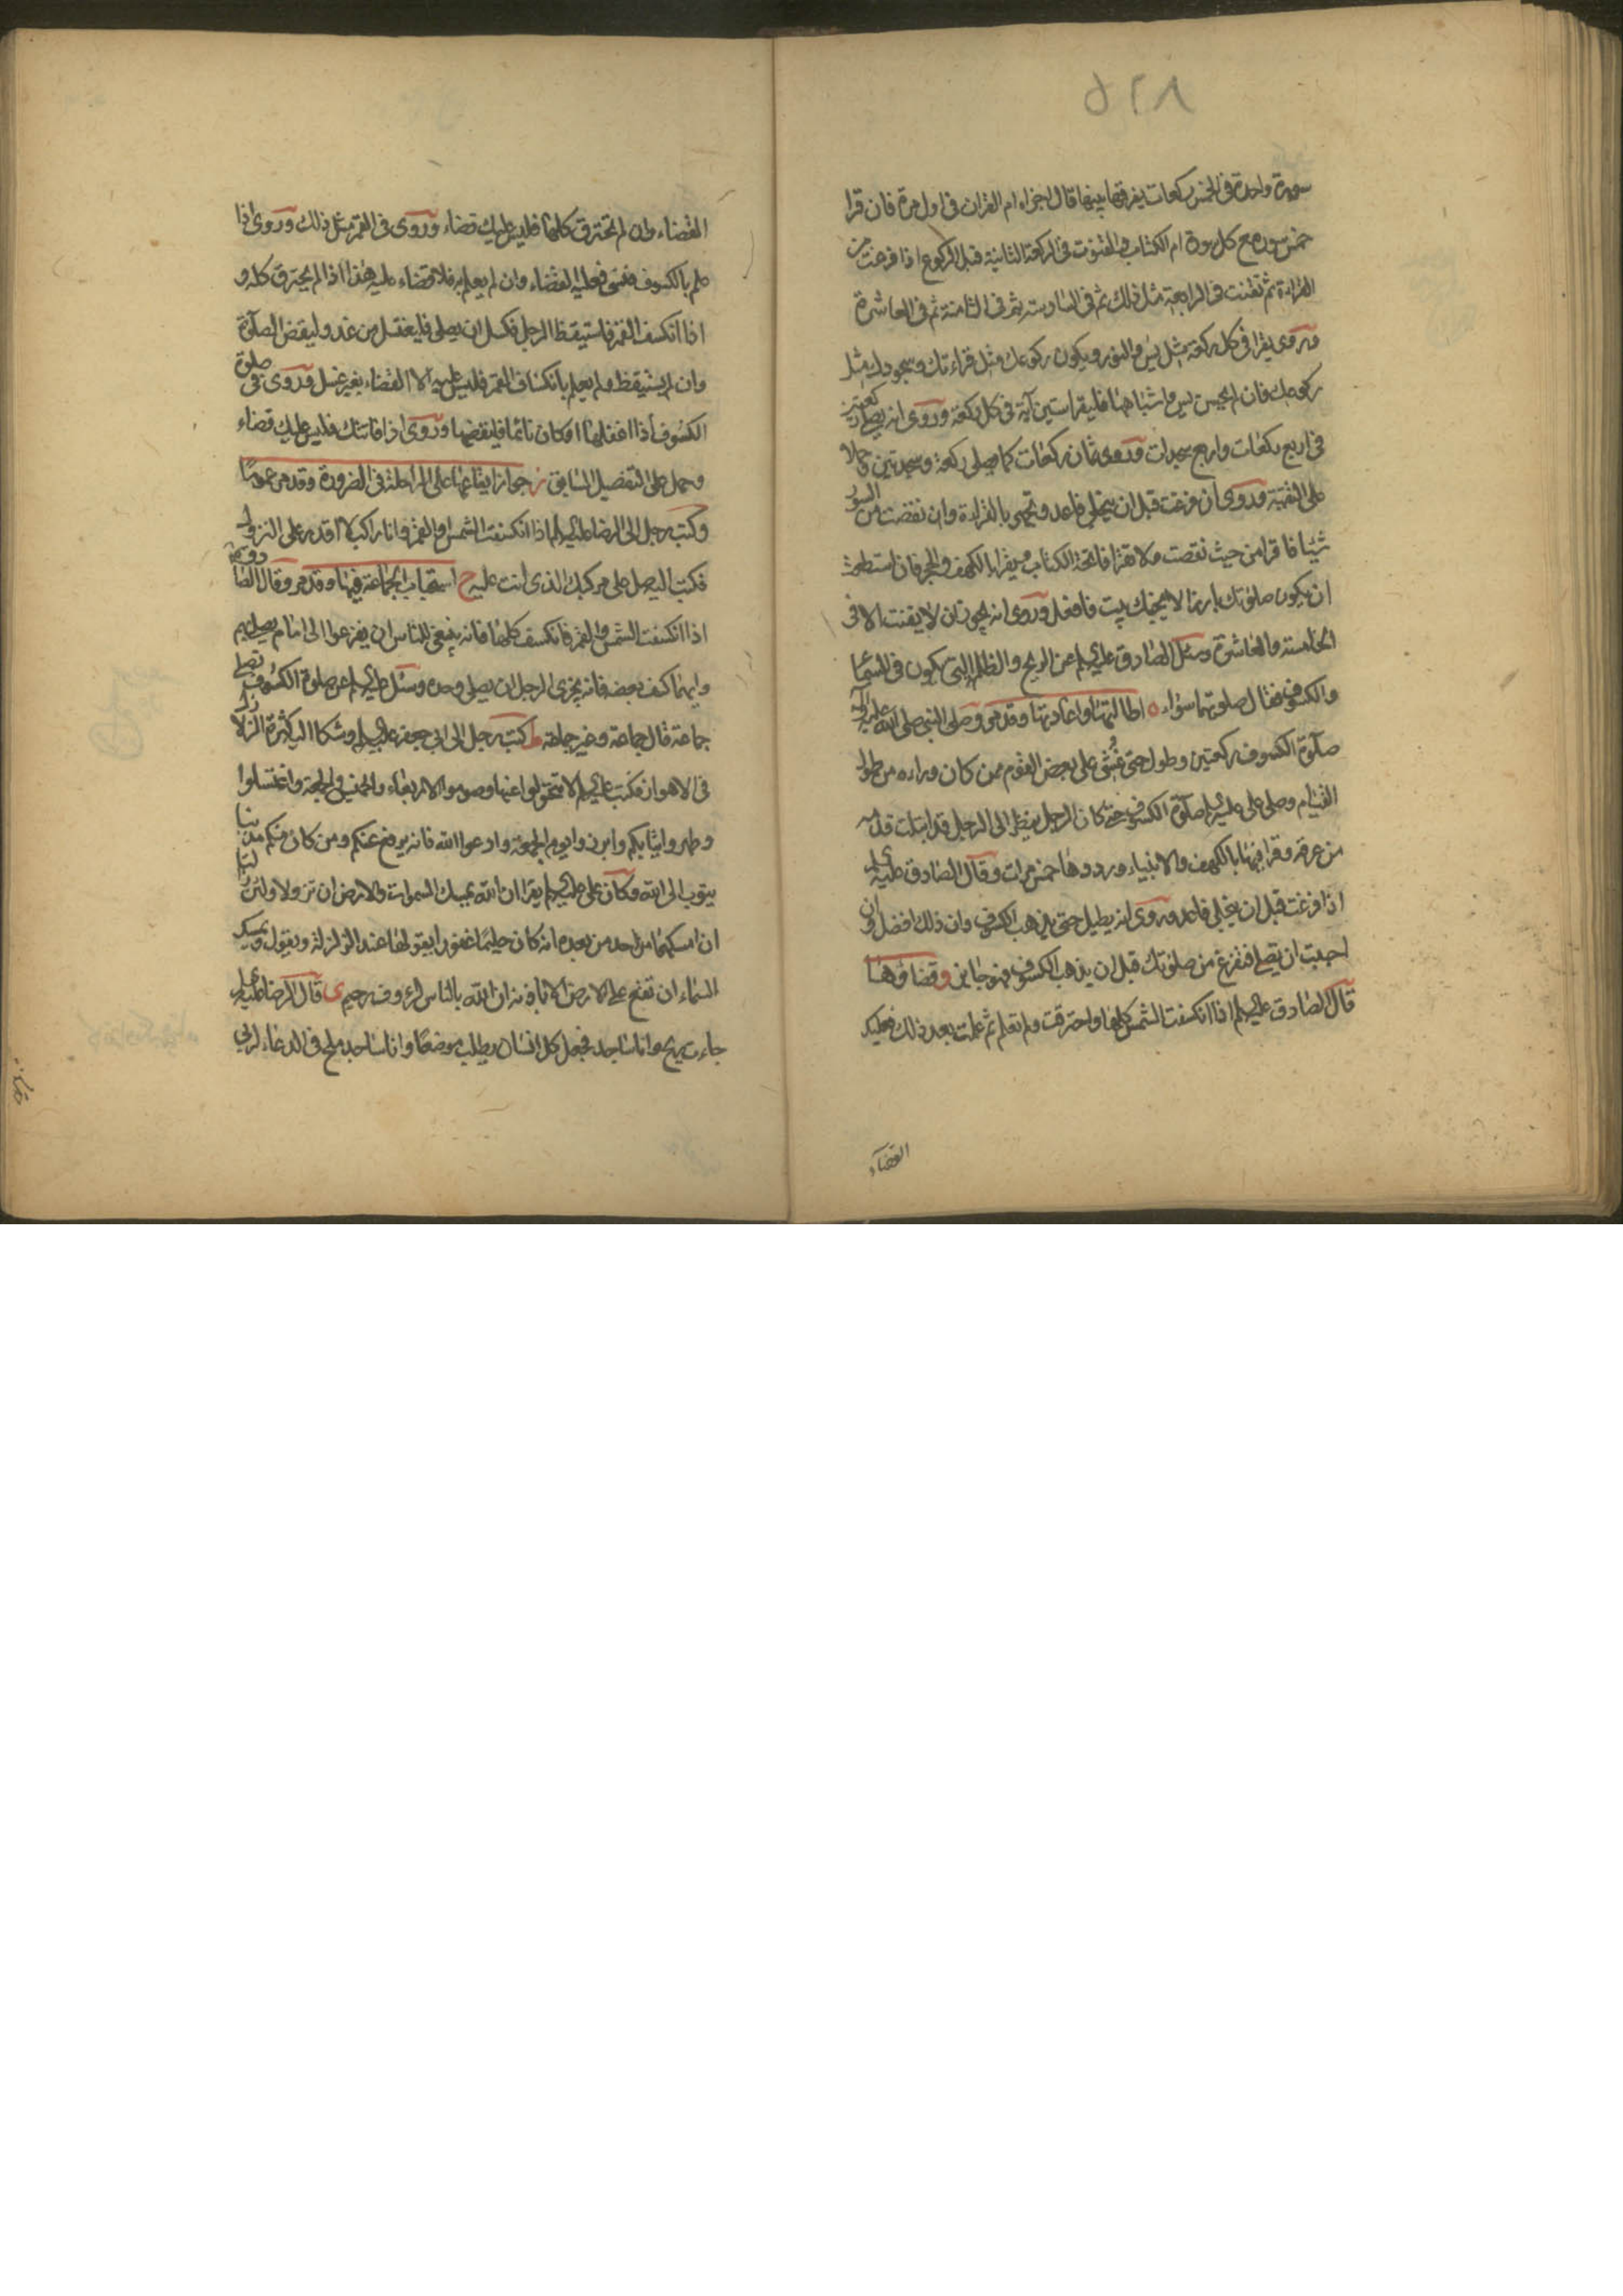 ٥٢٨
سورة واحدة فى الخمس ركعات يفرقها بينها قال اجزاه ام القران فى اول مرة فان قرا
خمس سور مع كل سورة ام الكتاب والقنوت فى الركعة الثانية قبل الركوع اذا فرغت من
القراءة ثم تقنت فى الرابعة مثل ذلك ثم فى السادسة ثم فى الثامنة ثم فى العاشرة
وروى يقرا فى كل ركعة مثل يس والنور ويكون ركوعك مثل قراءتك وسجودك مثل
ركوعك فان لم يحسن يس واشباهها فليقرا ستين آية فى كل ركعة وروى انه يصلى ركعتين
فى اربع ركعات واربع سجدات وروى ثمان ركعات كما يصلى ركعة وسجدتين وحملا
على التقية وروى ان فرغت قبل ان ينجلى فاعد وتجهر بالقراءة وان نقصت من السور
شيئا فاقرا من حيث نقصت ولا تقرا فاتحة الكتاب ويقرا الكهف والحجر فان استطعت
ان يكون صلوتك بارزا لا يجنك بيت فافعل وروى انه يجوز ان لا يقنت الا فى
الخامسة والعاشرة وسئل الصادق عليه السلم عن الريح والظلمة التى تكون فى السماء
والكسوف فقال صلوتهما سواء ه اطالتها واعادتها وقد مر وصلى النبى صلى الله عليه وآله
صلوة الكسوف ركعتين وطول حتى غُشى على بعض القوم ممن كان وراءه من طول
القيام وصلى على عليه السلم صلوة الكسوف حتى كان الرجل ينظر الى الرجل قد ابتلت قدمه
من عرقه وقرا فيها بالكهف والانبياء ورددها خمس مرات وقال الصادق عليه السلم
اذا فرغت قبل ان ينجلى فاعد وروى انه يطيل حتى يذهب الكسوف وان ذلك افضل وان
احببت ان يصلى فتفرغ من صلوتك قبل ان يذهب الكسوف فهو جايز و قضاؤها
قال الصادق عليه السلم اذا انكسفت الشمس كلها واحترقت ولم تعلم ثم علمت بعد ذلك فعليك
القضاء
القضاء وان لم تحترق كلها فليس عليك قضاء وروى فى القمر مثل ذلك وروى اذا
علم بالكسوف فنسى فعليه القضاء وان لم يعلم به فلا قضاء عليه هذا اذا لم يحترق كله و
اذا انكسف القمر فاستيقظ الرجل فكسل ان يصلى فليغتسل من غد وليقض الصلوة
وان لم يستيقظ ولم يعلم بانكساف القمر فليس عليه الا القضاء بغير غسل وروى فى صلوة
الكسوف اذا اغفلها او كان نائما فليقضها وروى اذا فاتتك فليس عليك قضاء
وحمل على التفصيل السابق ز جواز ايقاعها على الراحلة فى الضرورة وقد مر عموما
وكتب رجل الى الرضا عليه السلم اذا انكسفت الشمس والقمر وانا راكب لا اقدر على النزول
فكتب اليه صل على مركبك الذى انت عليه ح استحباب الجماعة فيها وقد مر وقال الصادق
اذا انكسفت الشمس والقمر فانكسف كلها فانه ينبغى للناس ان يفزعوا الى امام يصلى بهم
وايهما كسف بعضه فانه يجزى الرجل ان يصلى وحده وسئل عليه السلم عن صلوة الكسوف تصلى
جماعة قال جماعة وغير جماعة ط كتب رجل الى ابى جعفر عليه السلم وشكا اليه كثرة الزلازل
فى الاهواز فكتب عليه السلم لا تتحولوا عنها وصوموا الاربعاء والخميس والجمعة واغتسلوا
وطهروا ثيابكم وابرزوا يوم الجمعة وادعوا الله فانه يرفع عنكم ومن كان منكم مذنبا
يتوب الى الله وكان على عليه السلم يقرا ان الله يمسك السموات والارض ان تزولا ولئن زالتا
ان امسكهما من احد من بعده انه كان حليما غفورا يقولها عند الزلزلة ويقول ويمسك
السماء ان تقع على الارض الا باذنه ان الله بالناس لرءوف رحيم ى قال الرضا عليه السلم
جاءت ريح وانا ساجد فجعل كل انسان يطلب موضعا وانا ساجد ملح فى الدعاء لربى